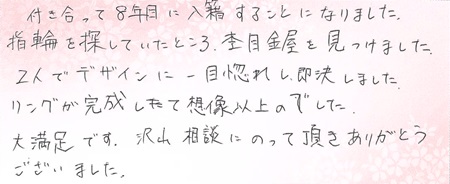 付き合って8年目に入籍することになりました。
指輪を探していたところ、杢目金屋を見つけました。
2人でデザインに一目惚れし即決しました。
リングが完成しとて想像以上のでした。
大満足です。沢山相談にのって頂きありがとう
ございました。